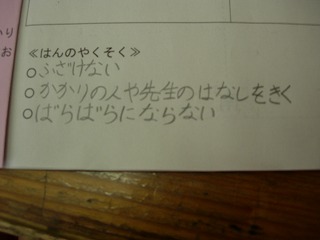 かり
お
≪はんのやくそく≫
○ふざけない
○かかりの人や先生のはなしをきく
○ばらばらにならない